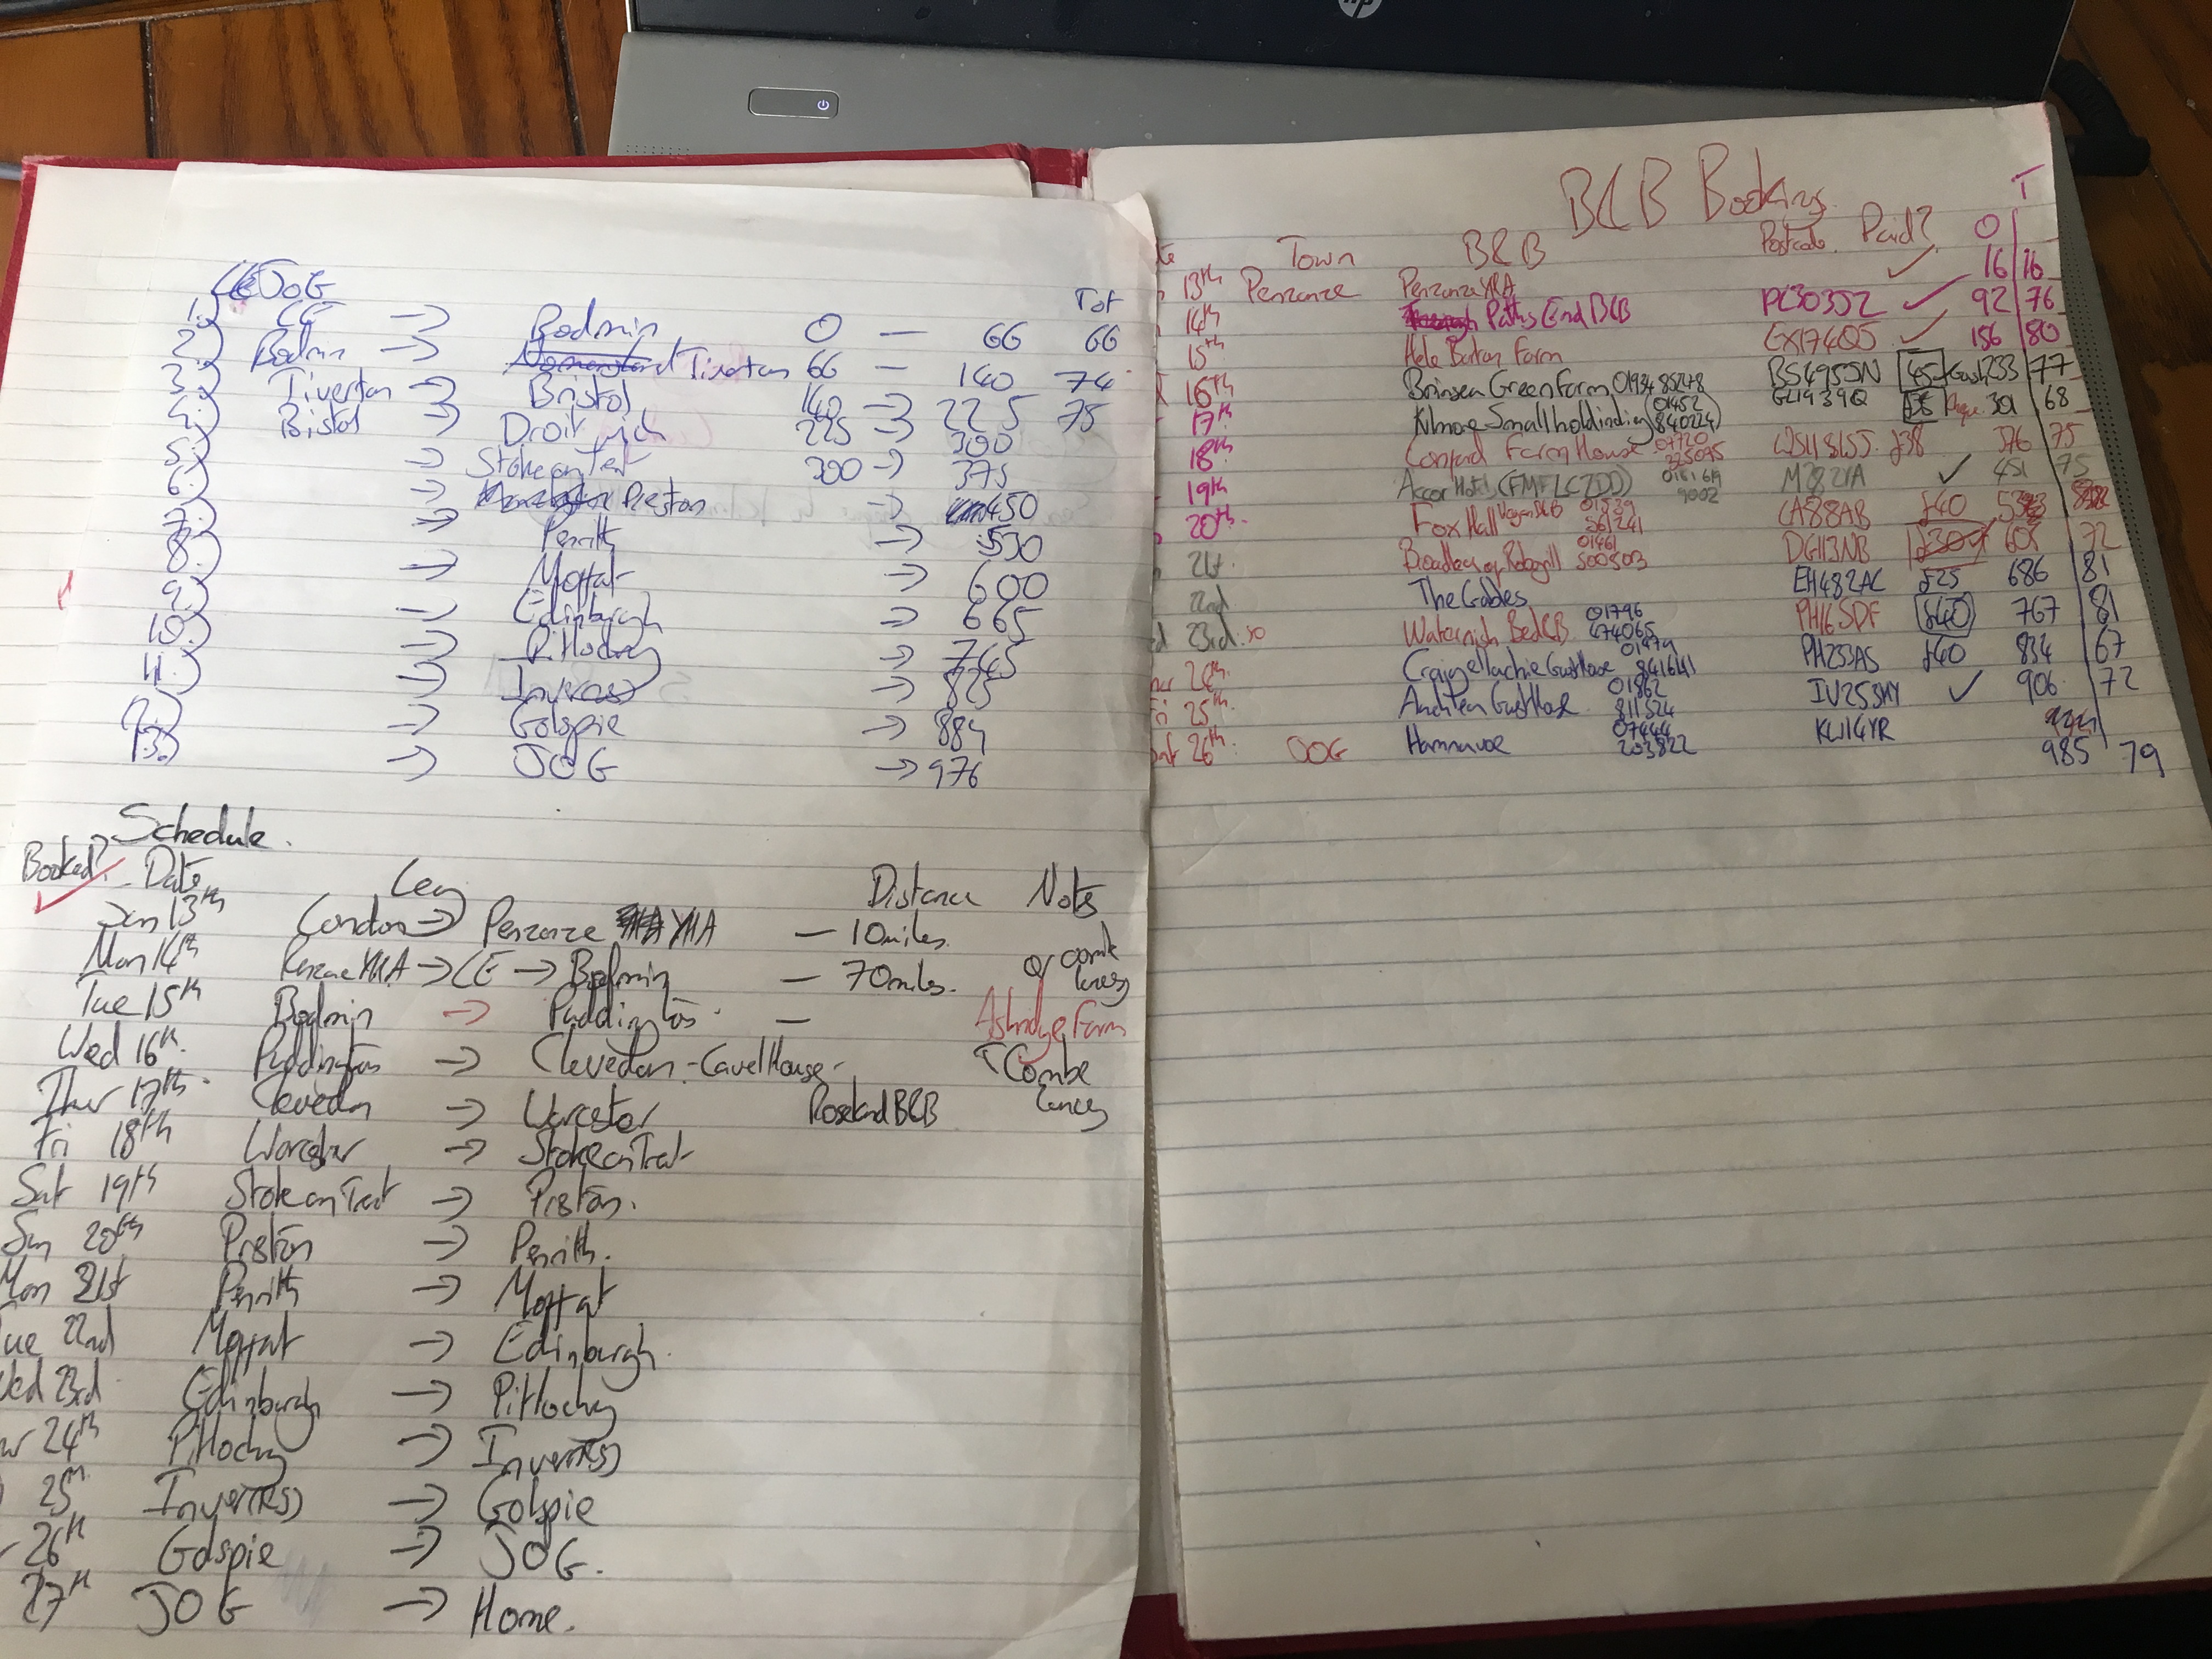 hp
LEJOG
Tot
1.) LE → Bodmin 0 — 66 66
2.) Bodmin → Tiverton 66 — 140 74
3.) Tiverton → Bristol 140 → 225 75
4.) Bristol → Droitwich 225 → 300
5.) → Stoke on Trent 300 → 375
6.) → Preston → 450
7.) → Penrith → 530
8.) → Moffat → 600
9.) → Edinburgh → 665
10.) → Pitlochry → 745
11.) → Inverness → 825
12.) → Golspie → 884
13.) → JOG → 976
Schedule.
Booked? Date Leg Distance Notes
Sun 13th London → Penzance YHA — 10miles.
Mon 14th Penzance YHA → LE → Bodmin — 70miles. or Combe Lancey
Tue 15th Bodmin → Puddington — Ashridge Farm
Wed 16th. Puddington → Clevedon - Cavell House - Combe Lancey
Thur 17th. Clevedon → Worcester Roseland B&B
Fri 18th Worcester → Stoke on Trent
Sat 19th Stoke on Trent → Preston.
Sun 20th Preston → Penrith.
Mon 21st Penrith → Moffat
Tue 22nd Moffat → Edinburgh.
Wed 23rd Edinburgh → Pitlochry
24th Pitlochry → Inverness
25th Inverness → Golspie
26th Golspie → JOG.
27th JOG → Home.
B&B Bookings.
Town B&B Postcode Paid? O T
13th Penzance Penzance YHA ✓ 16 16
14th Paths End B&B PL30 3JZ ✓ 92 76
15th Hele Barton Farm EX17 4QJ ✓ 156 80
16th Brinsea Green Farm 01934 85278 BS49 5JN 45 Cash 233 77
17th Kilmore Smallholding (01452 840224) GL19 3 301 68
18th Farm House 07720 325095 £38 376 75
19th Accor Hotel (FMFLCZDD) 0161 619 9002 ✓ 451 75
20th. Fox Hall Vegan B&B 01539 561241 LA8 8AB £40
21st. 01461 500503 DG11 3NB £30 72
22nd The Gables EH48 2AC £25 686 81
23rd. Waternish Bed&B 01796 474065 PH16 5DF £40 767 81
24th. Craigellachie Guest House 01479 841641 PH23 3AS £40 834 67
Fri 25th. Guest House 01862 811524 IV25 3HY ✓ 906 72
Sat 26th. JOG Hamnavoe 07444 203822 KW1 4YR 985 79